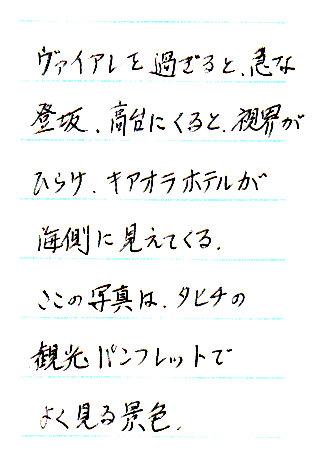 ヴァイアレを過ぎると、急な
登坂、高台にくると、視界が
ひらけ、キアオラホテルが
海側に見えてくる。
ここの写真は、タヒチの
観光パンフレットで
よく見る景色。